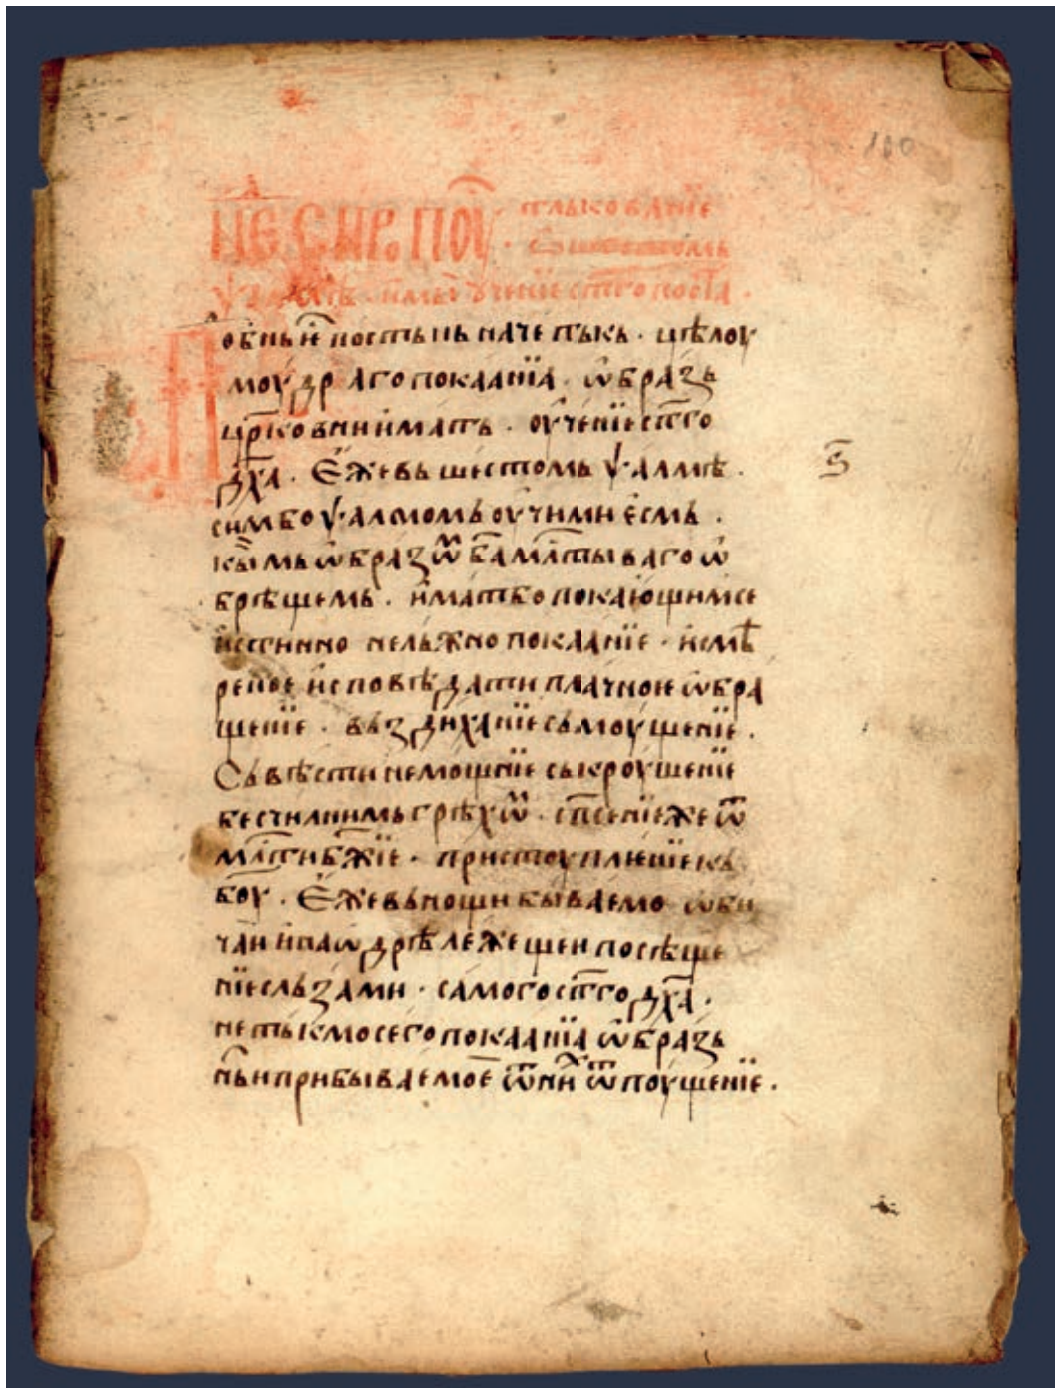 100
НЕ СИР ПОУ тлькованїе
ѱал҃мѣ
обныи҆ постьнь начетькь · цѣлоу
моудраго покаанїа · ѡ҆бразь
цр҃ковни имать · оу҆ченїе ст҃го
дх҃а · Є҆же вь шестомь ѱалмѣ ·
ѕ҃
симь бо ѱалмомь оучими е҆смь ·
кы̏мь ѡбразѡⷨ б҃а млⷭ҇тываго ѡ
брѣщемь · и҆мать бо покаю҆щимсе
и҆стинно нельжно покаанїе · и҆смѣ
реное и҆сповѣдати плачною ѡ҆бра
щенїе · вьздиханїе сьмоущенїе ·
Сьвѣсти немощнїе ськроушенїе
бесчислнимь грѣхѡⷨ · сп҃сенїе же ѿ
млⷭ҇ти бж҃їе · пристоупльшїе кь
бо҃у · Є҆же вь нощи бываемо ѡби
чаи и҆ на ѡдрѣ лежещеи посѣще
нїе сльзами · самого ст҃го дх҃а ·
не тькмо сего покаанїа ѡ҆бразь
нь и прибываемое ѿ нѥ҆ ѿпоущенїе ·